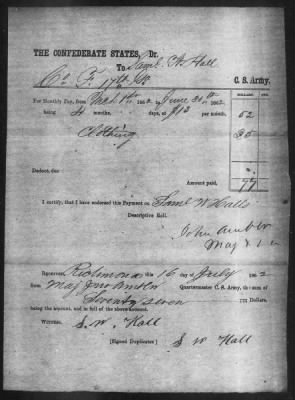 THE CONFEDERATE STATES, Dr.
To Saml. W. Hall
Co F. 17th C. S. Army.
DOLLARS. CTS.
For Monthly Pay, from Mch 1st 1862, to June 30th 1862,
being 4 months, days, at $13 per month, 52
Clothing 25
Deduct, due
Amount paid, 77
I certify, that I have endorsed this Payment on Saml W Hall's
Descriptive Roll.
John Ambler
Maj &
RECEIVED, Richmond this 16 day of July 1862
from Maj Jno Ambler Quartermaster C. S. Army, the sum of
Seventy seven Dollars,
being the amount, and in full of the above account.
WITNESS, S. W. Hall
[Signed Duplicates] S W Hall